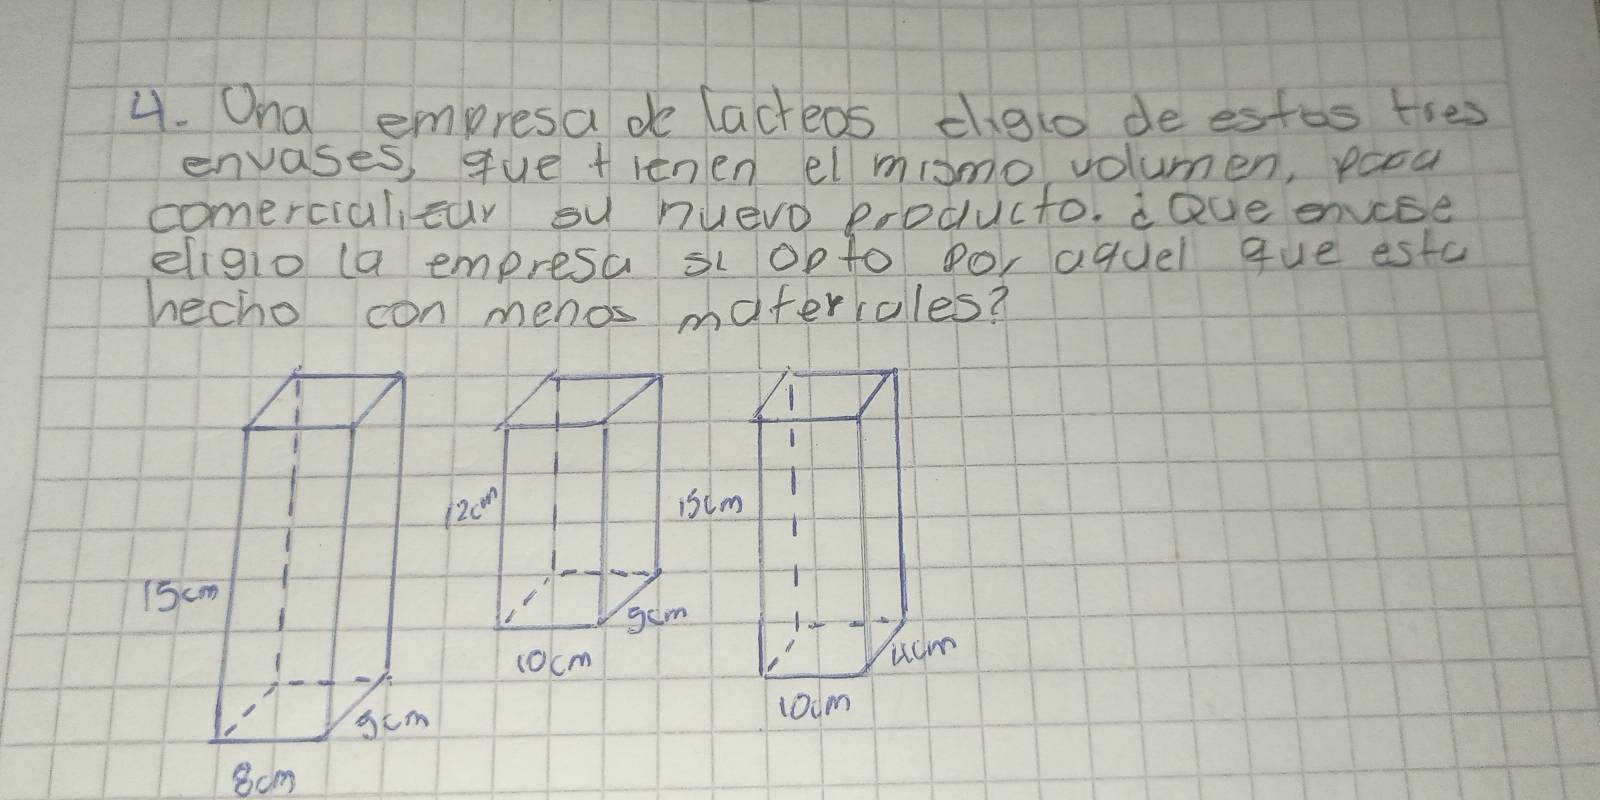 4. Una empresa de lacteos eligio de estos tres
envases, que tienen el mismo volumen, para
comercializar su nuevo producto. ¿Que envase
eligio la empresa si opto por aquel que esta
hecho con menos materiales?
12cm
15cm
15cm
9cm
10cm
4cm
10cm
9cm
8cm